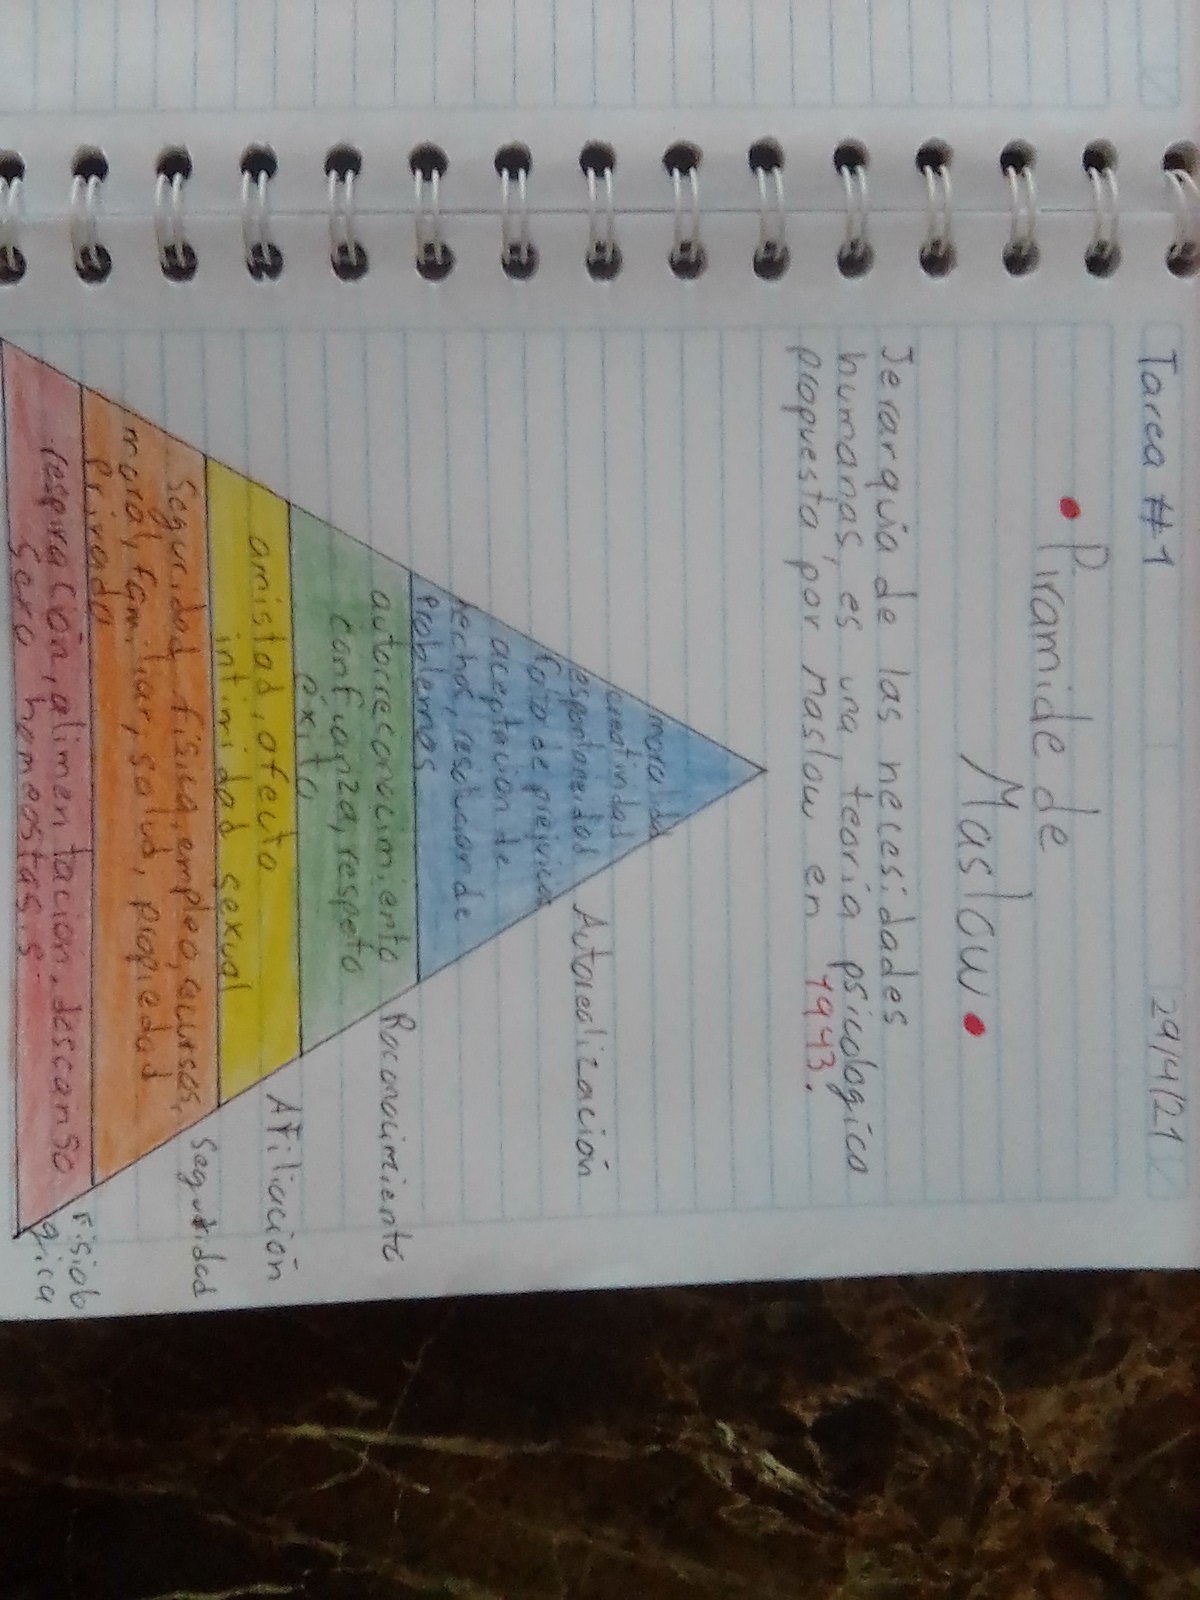 Tarea #1
29/4/21
• Piramide de
Maslow •
Jerarquia de las necesidades
humanas, es una teoría psicologica
propuesta por Maslow en 1943.
moralidad
creatividad
espontaneidad
falta de prejuicio
aceptacion de
hechos, resolucion de
problemas
Autorealización
autorreconocimiento
confianza, respeto
éxito
Raconocimiento
amistad, afecto
intimidad sexual
Afiliación
Seguridad física, empleo, recursos,
moral, familiar, salud, propiedad
privada
Seguridad
respiración, alimentacion, descanso
Sexo homeostasis
Fisioló
gica